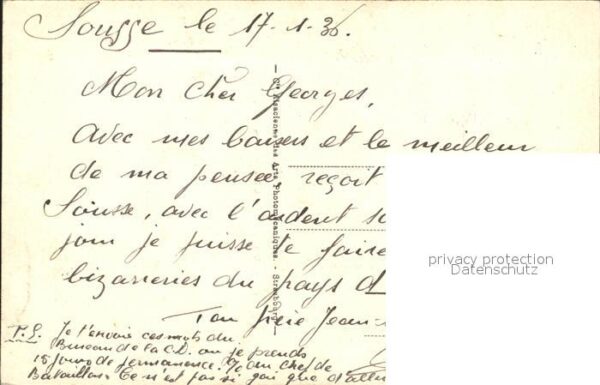 Sousse le 17-1-36.
Mon cher Georges,
Avec mes baisers et le meilleur
de ma pensée reçoit
Sousse, avec l'ardent
jour je puisse te faire
bizarreries du pays d
Ton frère Jean-
P.S. Je t'envoie ces mots du
Bureau de la C.D. ou je prends
15 jours de permanence. Chef de
Bataillon. Ce n'est pas si gai que d'aller
Cie Alsacienne des Arts Photomécaniques. - Strasbourg
privacy protection
Datenschutz